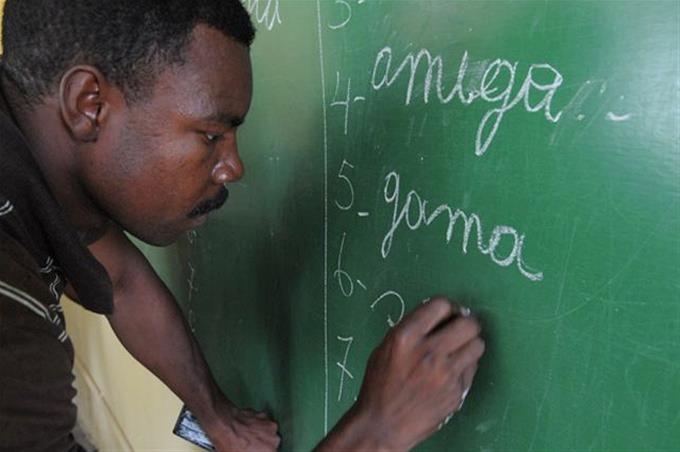 3-
4- amiga
5- gama
6-
7-